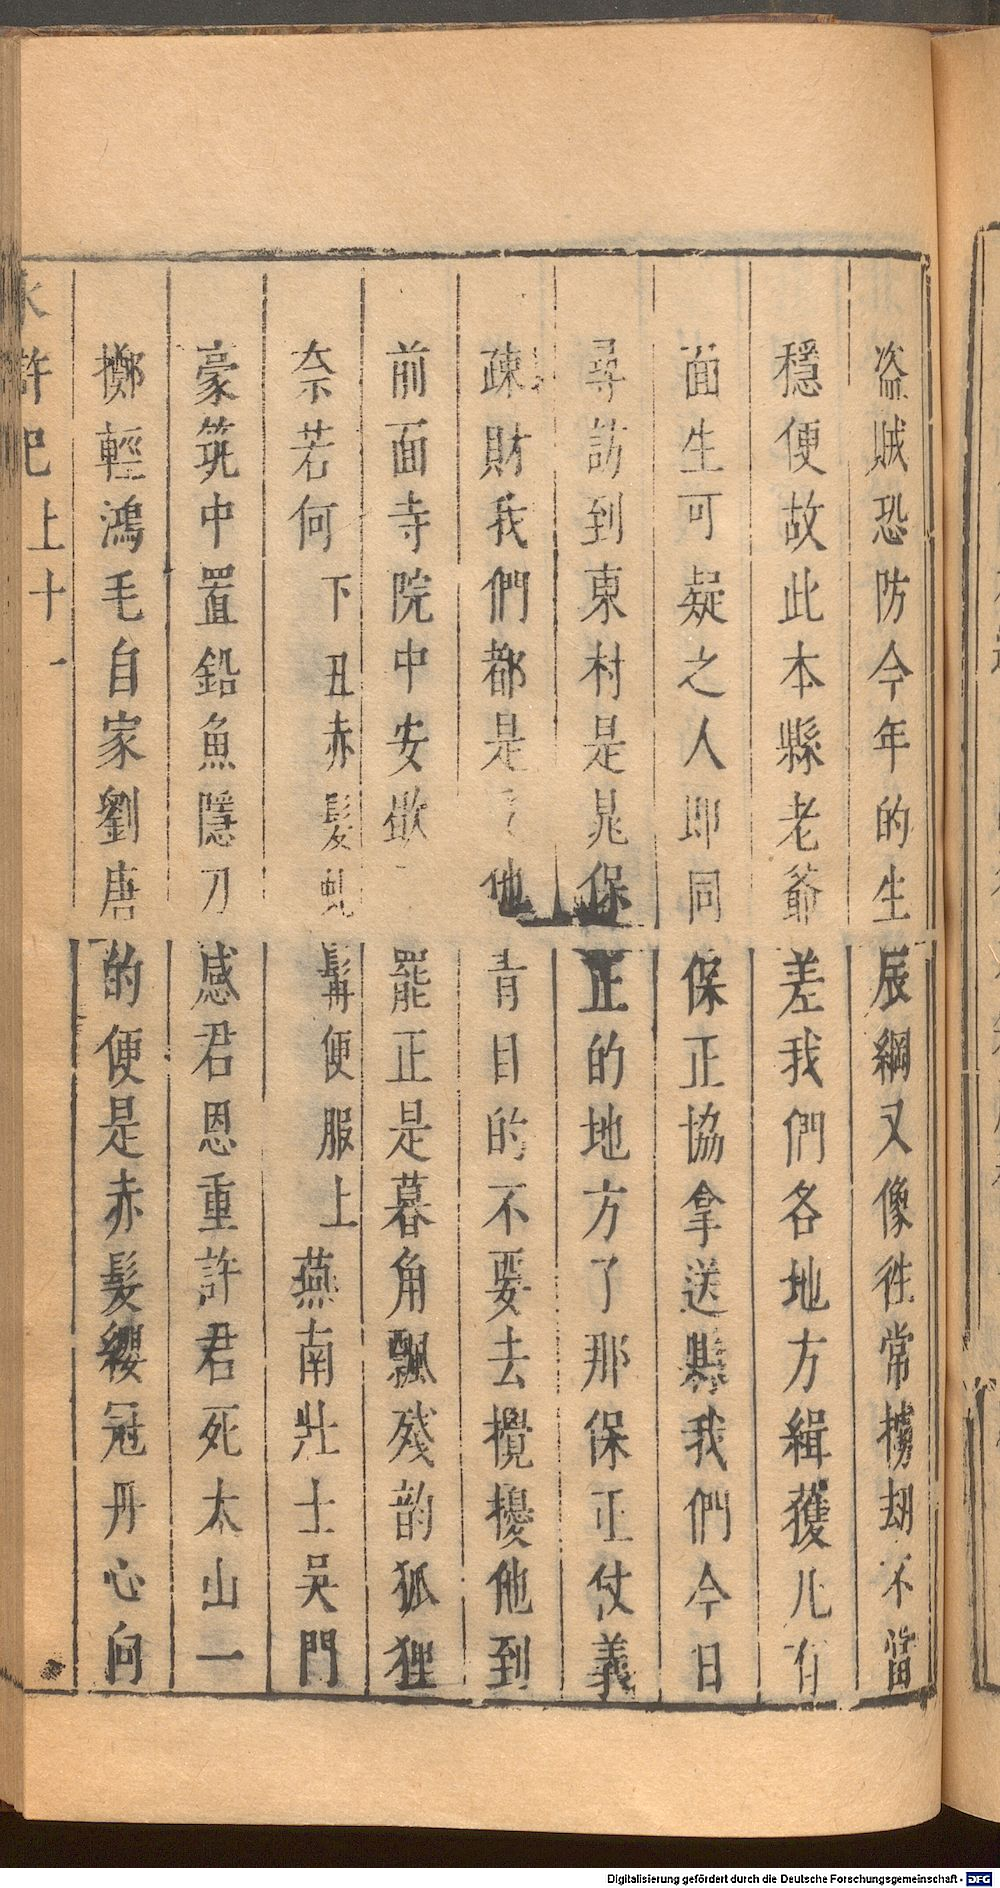 盗賊恐防今年的生辰綱又像徃常擄刼不當
穩便故此本縣老爺差我們各地方緝獲凡有
面生可疑之人即同保正協拿送縣我們今日
尋訪到東村是晁保正的地方了那保正仗義
疎財我們都是他青目的不要去攪擾他到
前面寺院中安歇罷正是暮角飄殘韵狐狸
奈若何 下 丑赤髮虬髯便服上 燕南壯士吳門
豪筑中置鉛魚隱刀感君恩重許君死太山一
擲輕鴻毛自家劉唐的便是赤髮纓冠丹心向
水滸記上 十一
Digitalisierung gefördert durch die Deutsche Forschungsgemeinschaft - DFG